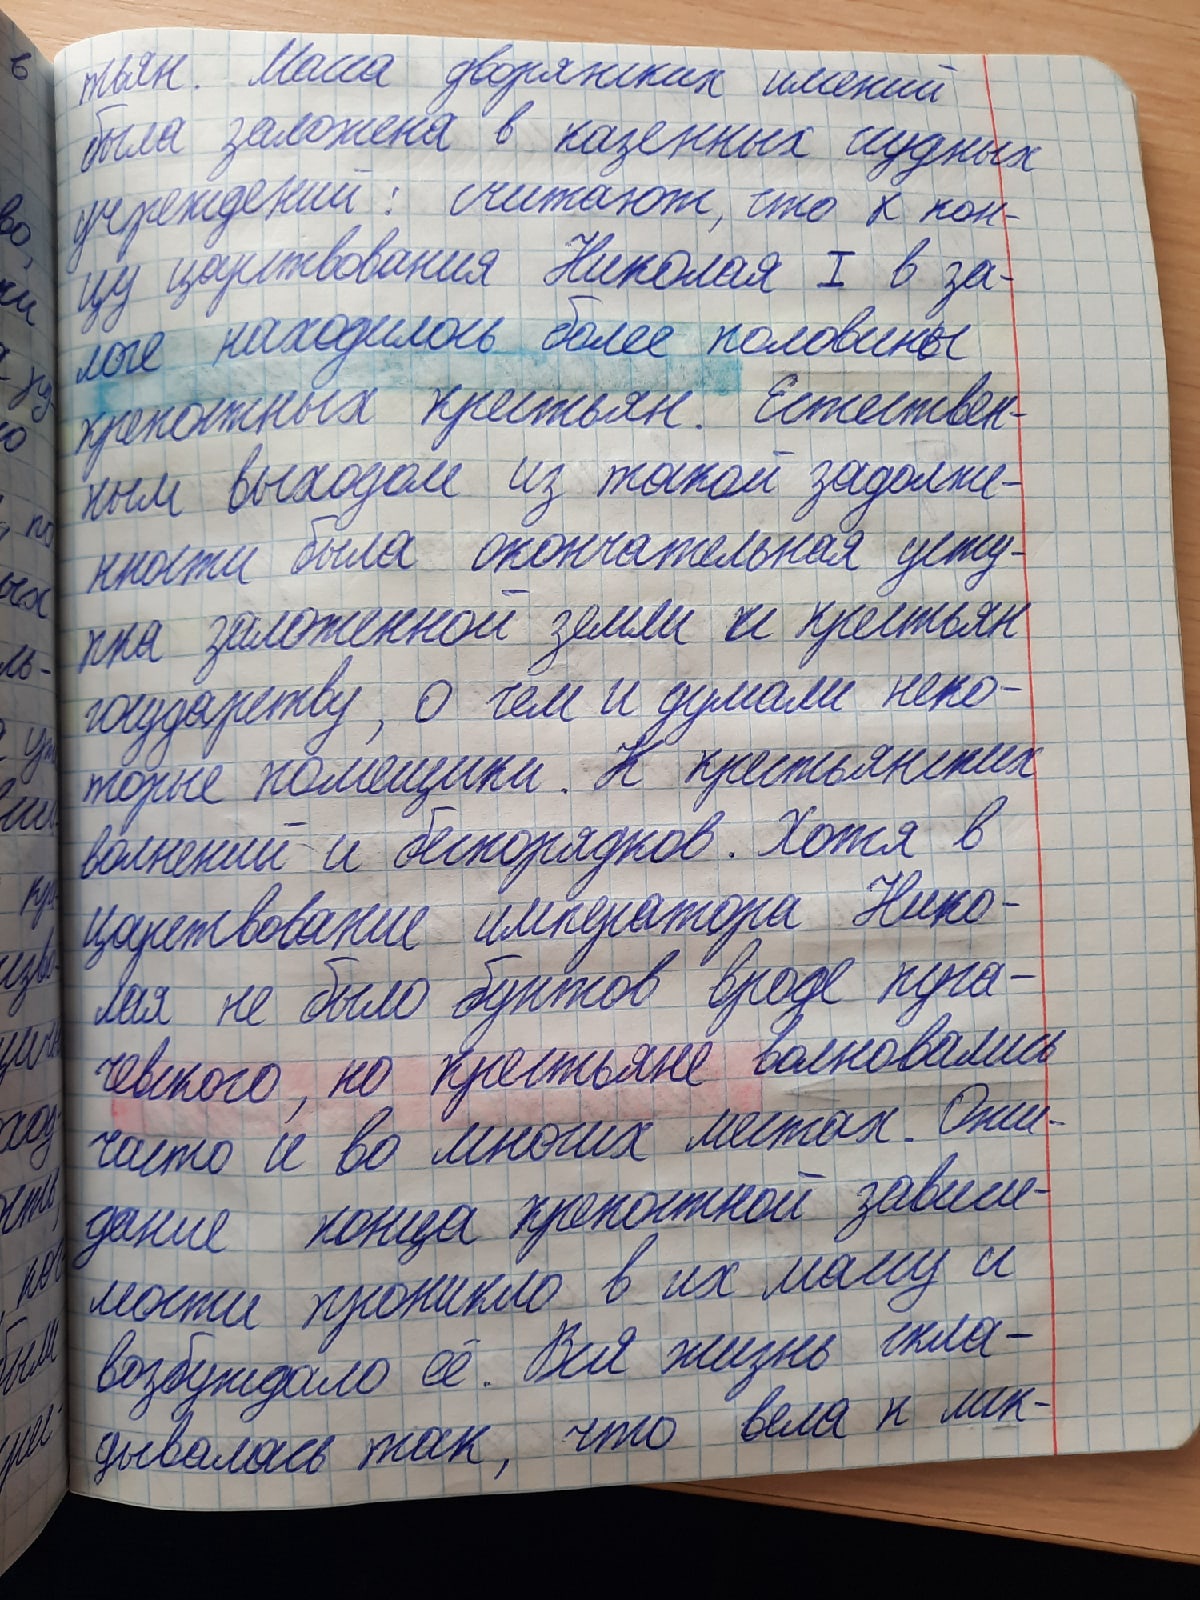 тьян. Масса дворянских имений
была заложена в казенных ссудных
учреждений: считают, что к кон-
цу царствования Николая I в за-
логе находилось более половины
крепостных крестьян. Естествен-
ным выходом из такой задолже-
нности была окончательная усту-
пка заложенной земли и крестьян
государству, о чем и думали неко-
торые помещики. К крестьянских
волнений и беспорядков. Хотя в
царствование императора Нико-
лая не было бунтов вроде пуга-
чевского, но крестьяне волновались
часто и во многих местах. Ожи-
дание конца крепостной зависи-
мости проникло в их массу и
возбуждало её. Вся жизнь скла-
дывалась так, что вела к лик-